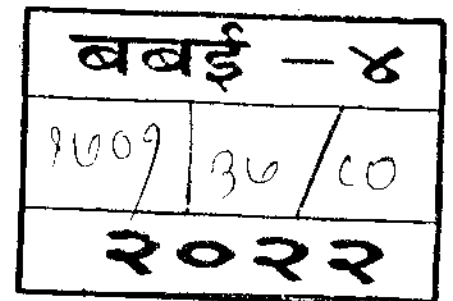 बबई - ४
१७०१ ३७ / ८०
२०२२